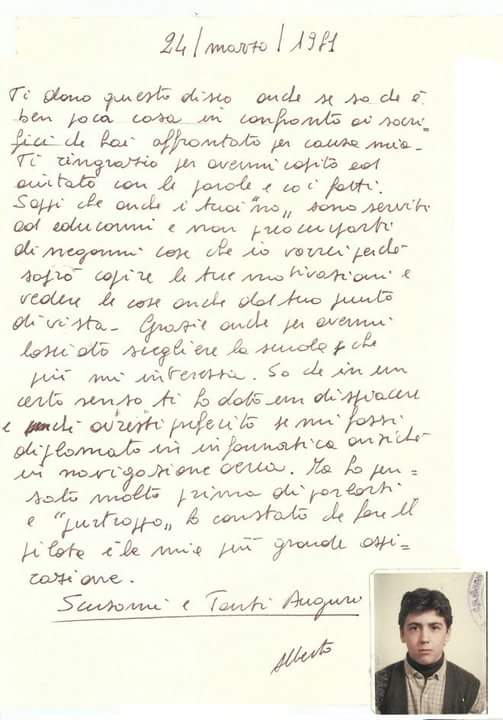 24/marzo/1981
Ti dono questo disco anche se so che è
ben poca cosa in confronto ai sacri=
fici che hai affrontato per causa mia-
Ti ringrazio per avermi capito ed
aiutato con le parole e co i fatti.
Sappi che anche i tuoi "no" sono serviti
ad educarmi e non preoccuparti
di negarmi cose che io vorrei perché
saprò capire le tue motivazioni e
vedere le cose anche dal tuo punto
di vista- Grazie anche per avermi
lasciato scegliere la scuola che
più mi interessa. So che in un
certo senso ti ho dato un dispiacere
e avresti preferito se mi fossi
diplomato in informatica anziché
in navigazione aerea. Ma ho pen=
sato molto prima di parlarti
e "purtroppo" ho constatato che fare il
pilota è la mia più grande aspi-
razione.
Scusami e Tanti Auguri
Alberto